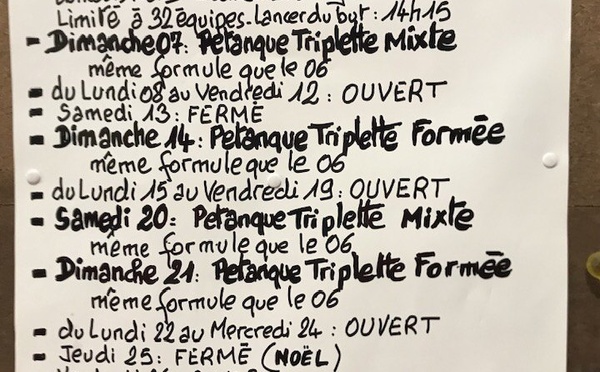 Limité à 32 équipes-Lancer du but : 14h15
- Dimanche 07: Petanque Triplette Mixte
même formule que le 06
- du Lundi 08 au Vendredi 12 : OUVERT
- Samedi 13 : FERMÉ
- Dimanche 14 : Petanque Triplette Formée
même formule que le 06
- du Lundi 15 au Vendredi 19 : OUVERT
- Samedi 20 : Petanque Triplette Mixte
même formule que le 06
- Dimanche 21 : Petanque Triplette Formée
même formule que le 06
- du Lundi 22 au Mercredi 24 : OUVERT
- Jeudi 25 : FERMÉ (NOËL)